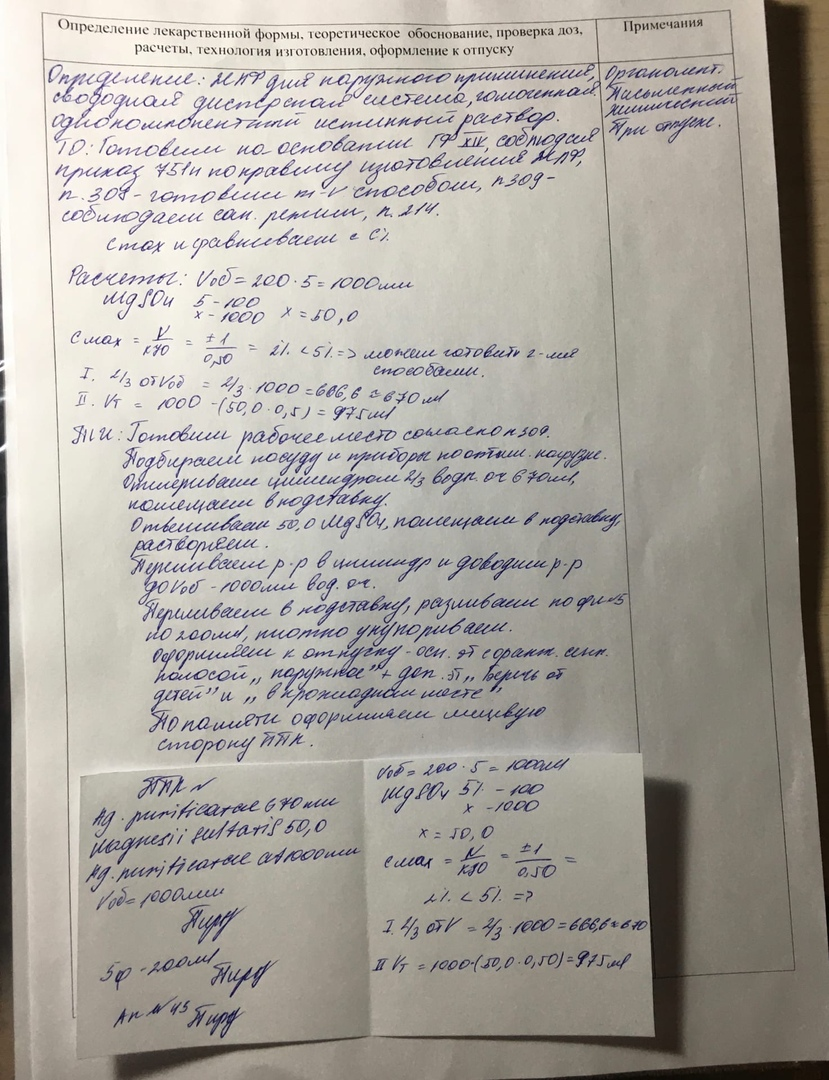 Определение лекарственной формы, теоретическое обоснование, проверка доз,
расчеты, технология изготовления, оформление к отпуску
Примечания
Определение: ЖЛФ для наружного применения,
свободная дисперсная система, гомогенная
однокомпонентный истинный раствор.
ТО: Готовим на основании ГФ XIV, соблюдая
приказ 751н по правилу изготовления ЖЛФ,
п. 309 - готовим m-v способом, п309-
соблюдаем сан. режим, п. 214.
Cmax и сравниваем с C%
Органолепт.
Письменный
Химический
При отпуске.
Расчеты: Vоб = 200 · 5 = 1000 мл
MgSO4 5 - 100
x - 1000 x = 50,0
Cmax = N/КУО = ±1/0,50 = 2% < 5% => можем готовить 2-мя
способами.
I. 2/3 от Vоб = 2/3 · 1000 = 666,6 ≈ 670 мл
II. Vт = 1000 - (50,0 · 0,5) = 975 мл
ТИ: Готовим рабочее место согласно п 309.
Подбираем посуду и приборы по оптим. нагрузке.
Отмериваем цилиндром 2/3 воды оч 670 мл,
помещаем в подставку.
Отвешиваем 50,0 MgSO4, помещаем в подставку,
растворяем.
Переливаем р-р в цилиндр и доводим р-р
до Vоб - 1000 мл вод. оч.
Переливаем в подставку, разливаем по фл-5
по 200 мл, плотно укупориваем.
Оформляем к отпуску - осн. эт с оранж. сигн.
полосой „наружное" + доп. эт „Беречь от
детей" и „в прохладном месте"
По памяти оформляем лицевую
сторону ППК.
ППК №
Aq. purificatae 670 мл
Magnesii sulfatis 50,0
Aq. purificatae ad 1000 мл
Vоб = 1000 мл
5ф - 200 мл
Ап № 43
Vоб = 200 · 5 = 1000 мл
MgSO4 5% - 100
x - 1000
x = 50,0
Cmax = N/КУО = ±1/0,50 =
2% < 5% =>
I. 2/3 от V = 2/3 · 1000 = 666,6 ≈ 670
II Vт = 1000 - (50,0 · 0,50) = 975 мл